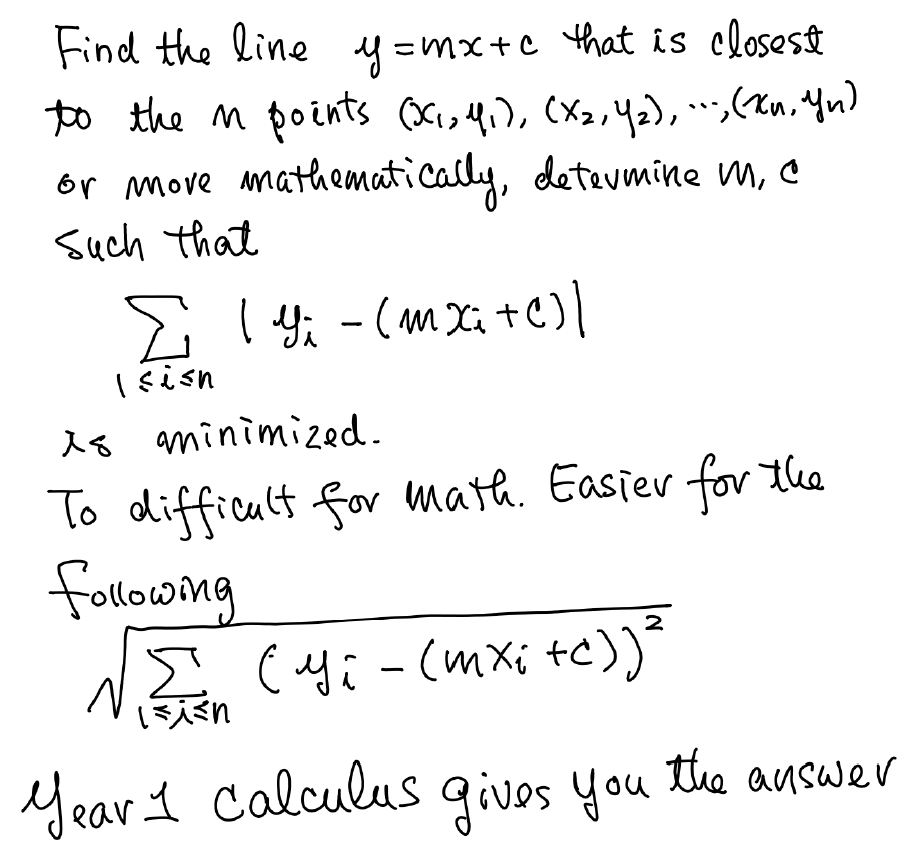 Find the line y = mx + c that is closest
to the n points (x₁, y₁), (x₂, y₂), ..., (xn, yn)
or more mathematically, determine m, c
such that
∑ | yi - (m xi + c) |
1 ≤ i ≤ n
is minimized.
To difficult for math. Easier for the
following
√ ∑ ( yi - (m xi + c))²
1 ≤ i ≤ n
Year 1 calculus gives you the answer